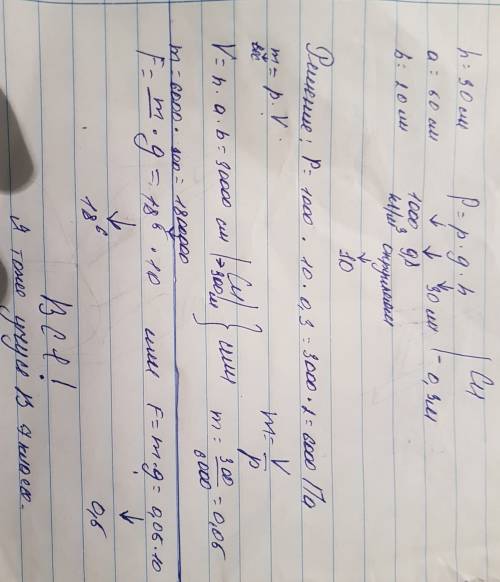 h = 30 см
a = 60 см
b = 20 см
P = p · g · h | Си
↓ ↓ ↓
1000 9,8 30 см | = 0,3 м
округляем
↓
≈10
Решение: P = 1000 · 10 · 0,3 = 3000 · 2 = 6000 Па
m = p · V. m = V/p
V = h · a · b = 36000 см | Си = 300 м } или m = 300/6000 = 0,05
m = 6000 · 300 = 1800000
F = m · g = 18⁶ · 10 или F = m · g = 0,05 · 10
↓ ↓
18⁶ 0,5
Всё!
Я тоже учусь в 7 классе.